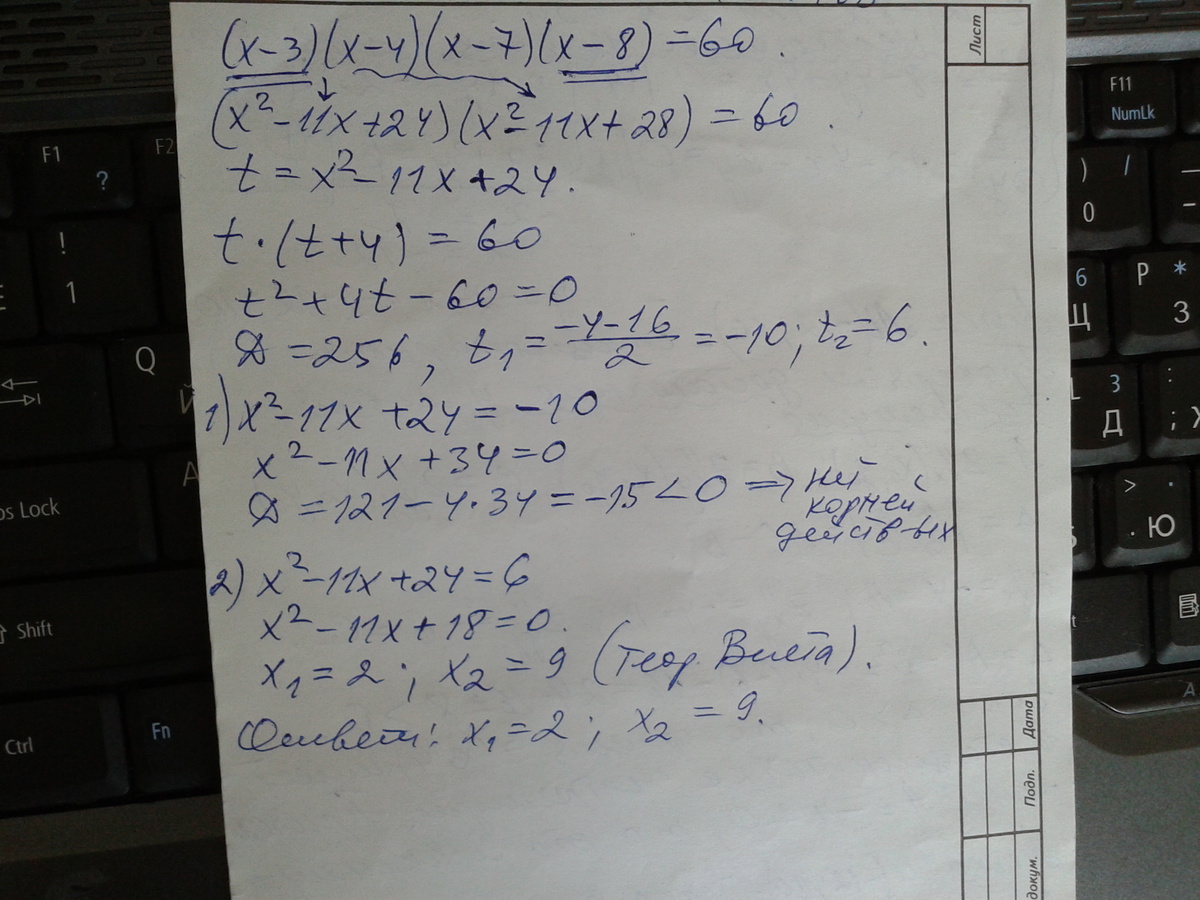 (x-3)(x-4)(x-7)(x-8)=60.
(x²-11x+24)(x²-11x+28)=60.
t=x²-11x+24.
t·(t+4)=60
t²+4t-60=0
D=256, t₁=(-4-16)/2=-10; t₂=6.
1) x²-11x+24=-10
x²-11x+34=0
D=121-4·34=-15<0 => нет
корней
действ-ых
2) x²-11x+24=6
x²-11x+18=0.
x₁=2; x₂=9 (теор. Виета).
Ответ: x₁=2; x₂=9.
Лист
Дата
Подп.
докум.
F1
?
F2
!
1
Q
Й
A
Shift
Ctrl
Fn
F11
NumLk
)
/
0
-
6
Щ
P
*
З
3
Д
:
;
>
.
. Ю
A